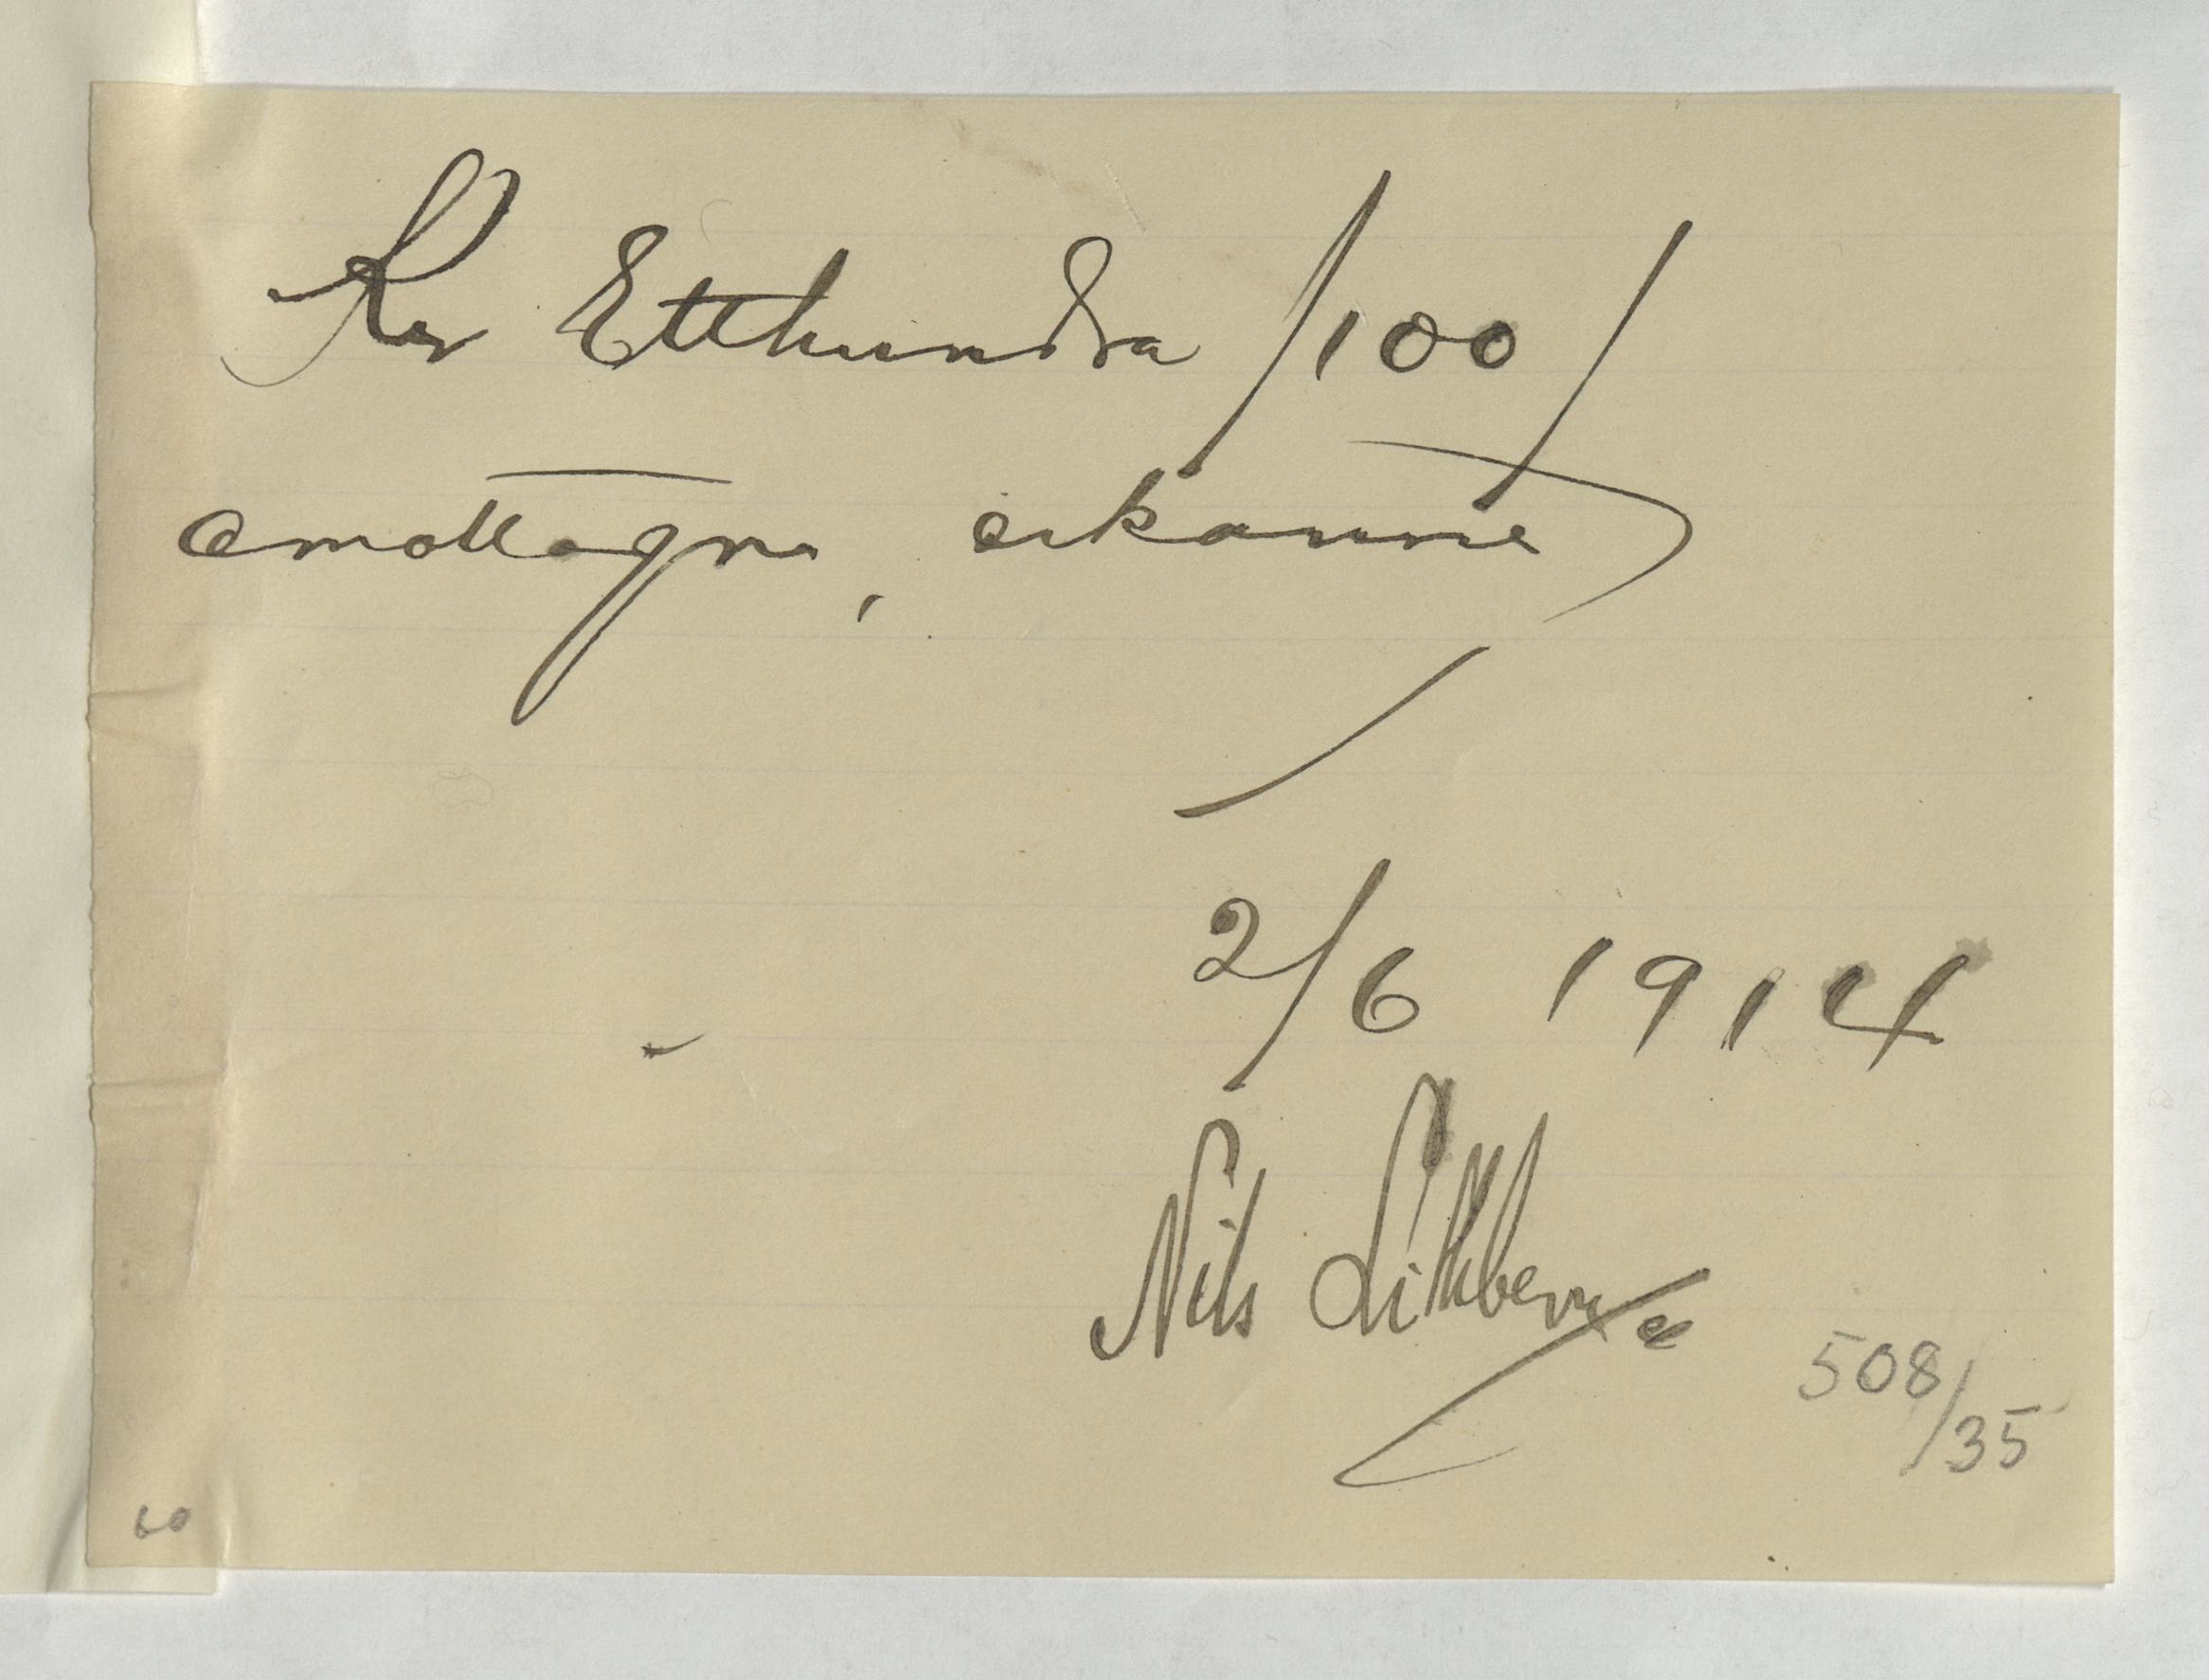 Kr Etthundra /100/
emottagna, erkännes
2/6 1914
Nils Lithberg
508/35
60